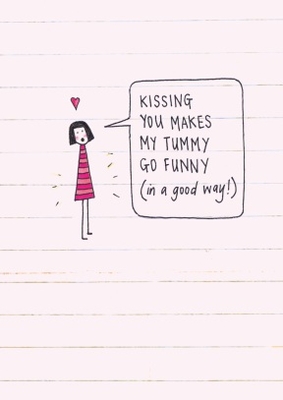 KISSING
YOU MAKES
MY TUMMY
GO FUNNY
(in a good way!)